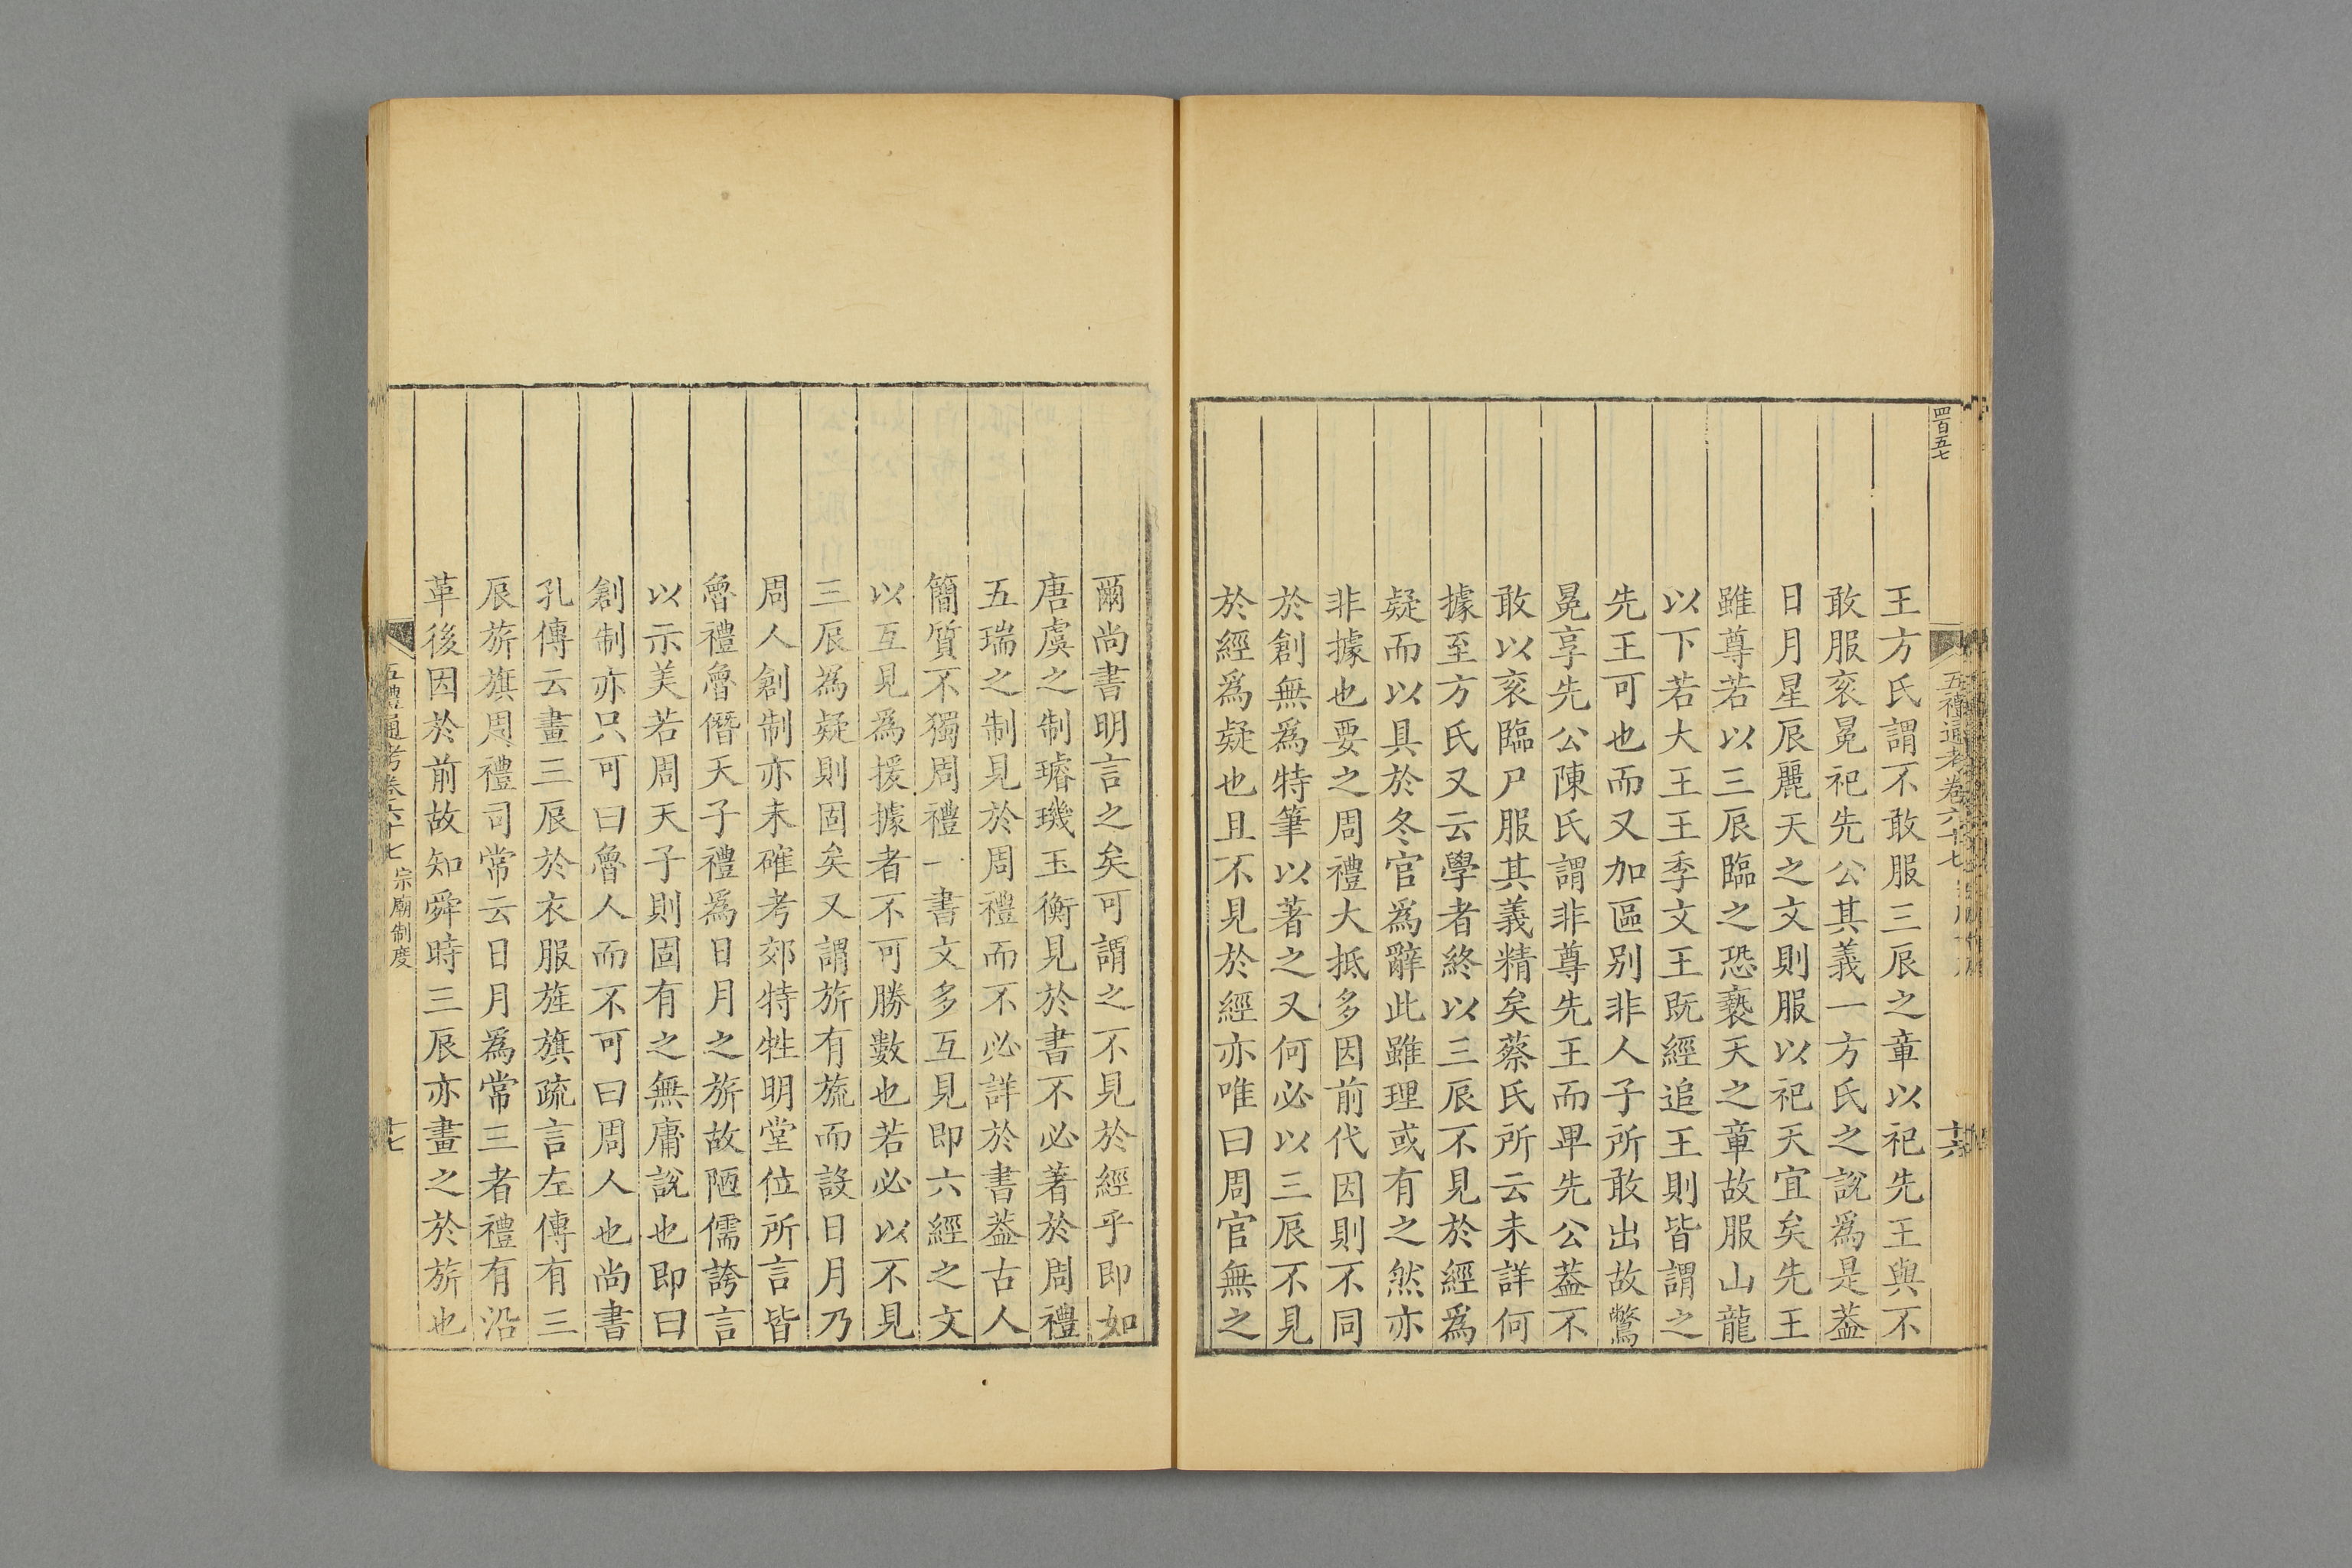 四百五七
五禮通考卷六十七
十六
王方氏謂不敢服三辰之章以祀先王與不
敢服衮冕祀先公其義一方氏之說爲是葢
日月星辰麗天之文則服以祀天宜矣先王
雖尊若以三辰臨之恐褻天之章故服山龍
以下若大王王季文王既經追王則皆謂之
先王可也而又加區别非人子所敢出故鷩
冕享先公陳氏謂非尊先王而卑先公葢不
敢以衮臨尸服其義精矣蔡氏所云未詳何
據至方氏又云學者終以三辰不見於經爲
疑而以具於冬官爲辭此雖理或有之然亦
非據也要之周禮大抵多因前代因則不同
於創無爲特筆以著之又何必以三辰不見
於經爲疑也且不見於經亦唯曰周官無之
爾尚書明言之矣可謂之不見於經乎即如
唐虞之制璿璣玉衡見於書不必著於周禮
五瑞之制見於周禮而不必詳於書葢古人
簡質不獨周禮一書文多互見即六經之文
以互見爲援據者不可勝數也若必以不見
三辰爲疑則固矣又謂旂有旒而設日月乃
周人創制亦未確考郊特牲明堂位所言皆
魯禮魯僭天子禮爲日月之旂故陋儒誇言
以示美若周天子則固有之無庸說也即曰
創制亦只可曰魯人而不可曰周人也尚書
孔傳云畫三辰於衣服旌旗疏言左傳有三
辰旂旗周禮司常云日月爲常三者禮有沿
革後因於前故知舜時三辰亦畫之於旂也
五禮通考卷六十七 宗廟制度
十七